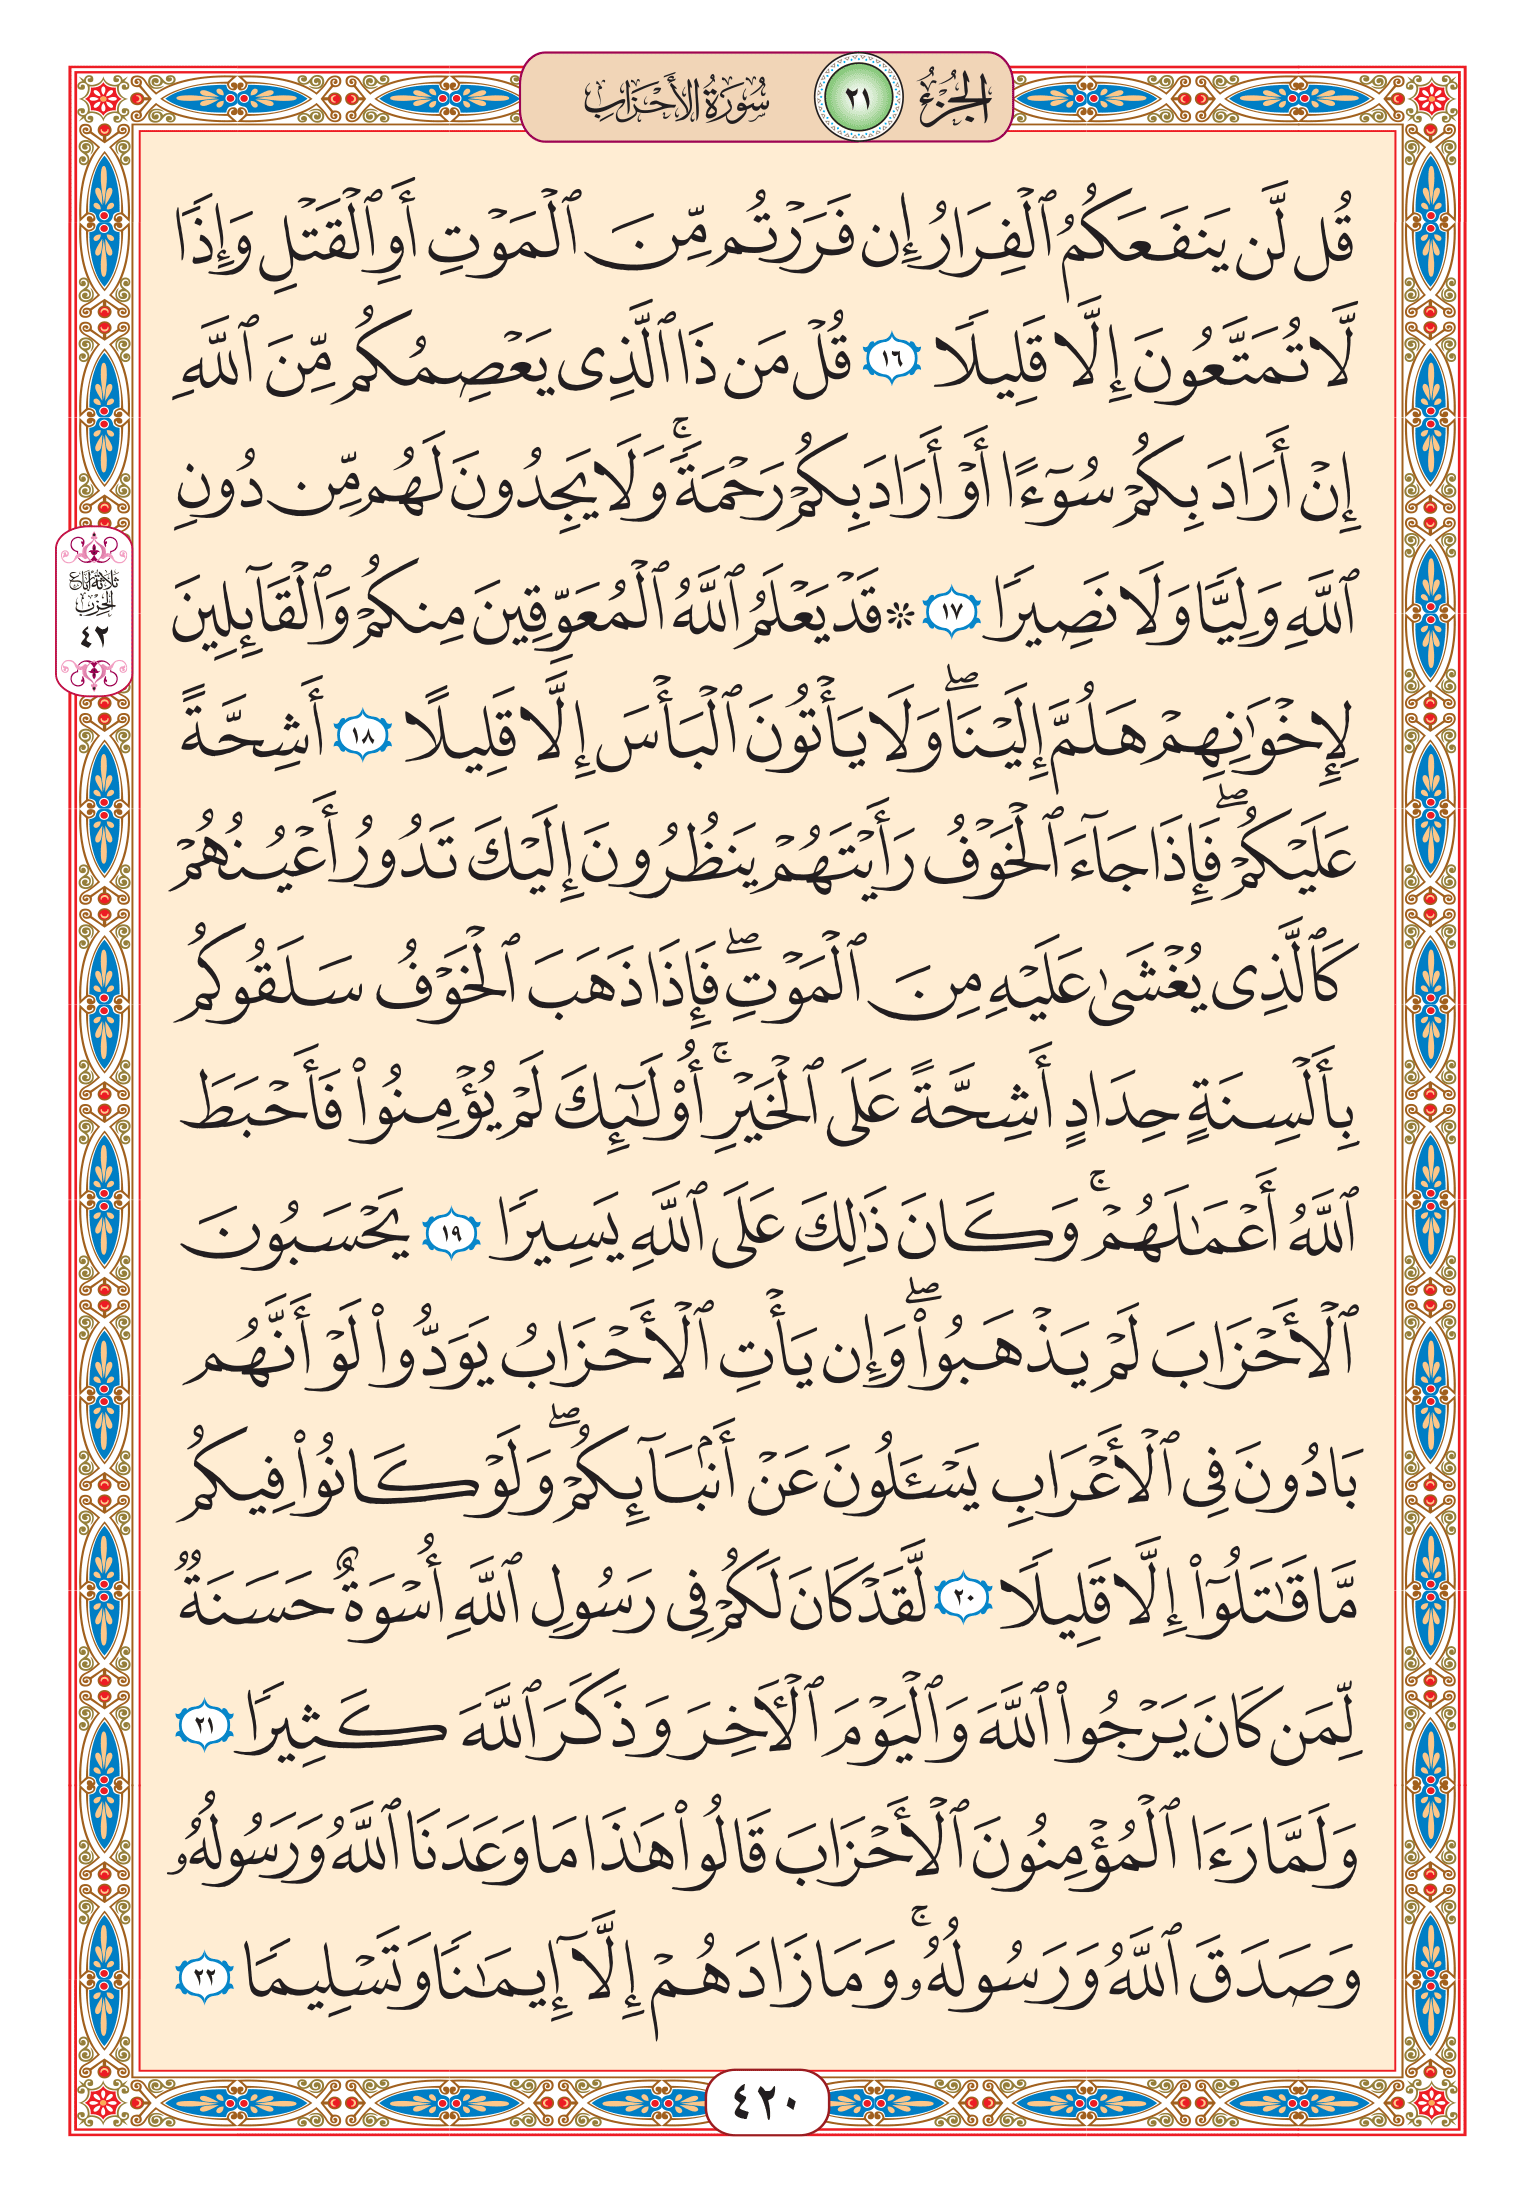 الجزء ٢١ سورة الأحزاب
قُل لَّن يَنفَعَكُمُ ٱلْفِرَارُ إِن فَرَرْتُم مِّنَ ٱلْمَوْتِ أَوِ ٱلْقَتْلِ وَإِذًا
لَّا تُمَتَّعُونَ إِلَّا قَلِيلًا ١٦ قُلْ مَن ذَا ٱلَّذِى يَعْصِمُكُم مِّنَ ٱللَّهِ
إِنْ أَرَادَ بِكُمْ سُوٓءًا أَوْ أَرَادَ بِكُمْ رَحْمَةً ۚ وَلَا يَجِدُونَ لَهُم مِّن دُونِ
ٱللَّهِ وَلِيًّا وَلَا نَصِيرًا ١٧ ۞ قَدْ يَعْلَمُ ٱللَّهُ ٱلْمُعَوِّقِينَ مِنكُمْ وَٱلْقَآئِلِينَ
ثلاثة أرباع
الحزب
٤٢
لِإِخْوَٰنِهِمْ هَلُمَّ إِلَيْنَا ۖ وَلَا يَأْتُونَ ٱلْبَأْسَ إِلَّا قَلِيلًا ١٨ أَشِحَّةً
عَلَيْكُمْ ۖ فَإِذَا جَآءَ ٱلْخَوْفُ رَأَيْتَهُمْ يَنظُرُونَ إِلَيْكَ تَدُورُ أَعْيُنُهُمْ
كَٱلَّذِى يُغْشَىٰ عَلَيْهِ مِنَ ٱلْمَوْتِ ۖ فَإِذَا ذَهَبَ ٱلْخَوْفُ سَلَقُوكُم
بِأَلْسِنَةٍ حِدَادٍ أَشِحَّةً عَلَى ٱلْخَيْرِ ۚ أُو۟لَـٰٓئِكَ لَمْ يُؤْمِنُوا۟ فَأَحْبَطَ
ٱللَّهُ أَعْمَـٰلَهُمْ ۚ وَكَانَ ذَٰلِكَ عَلَى ٱللَّهِ يَسِيرًا ١٩ يَحْسَبُونَ
ٱلْأَحْزَابَ لَمْ يَذْهَبُوا۟ ۖ وَإِن يَأْتِ ٱلْأَحْزَابُ يَوَدُّوا۟ لَوْ أَنَّهُم
بَادُونَ فِى ٱلْأَعْرَابِ يَسْـَٔلُونَ عَنْ أَنۢبَآئِكُمْ ۖ وَلَوْ كَانُوا۟ فِيكُم
مَّا قَـٰتَلُوٓا۟ إِلَّا قَلِيلًا ٢٠ لَّقَدْ كَانَ لَكُمْ فِى رَسُولِ ٱللَّهِ أُسْوَةٌ حَسَنَةٌ
لِّمَن كَانَ يَرْجُوا۟ ٱللَّهَ وَٱلْيَوْمَ ٱلْـَٔاخِرَ وَذَكَرَ ٱللَّهَ كَثِيرًا ٢١
وَلَمَّا رَءَا ٱلْمُؤْمِنُونَ ٱلْأَحْزَابَ قَالُوا۟ هَـٰذَا مَا وَعَدَنَا ٱللَّهُ وَرَسُولُهُۥ
وَصَدَقَ ٱللَّهُ وَرَسُولُهُۥ ۚ وَمَا زَادَهُمْ إِلَّآ إِيمَـٰنًا وَتَسْلِيمًا ٢٢
٤٢٠